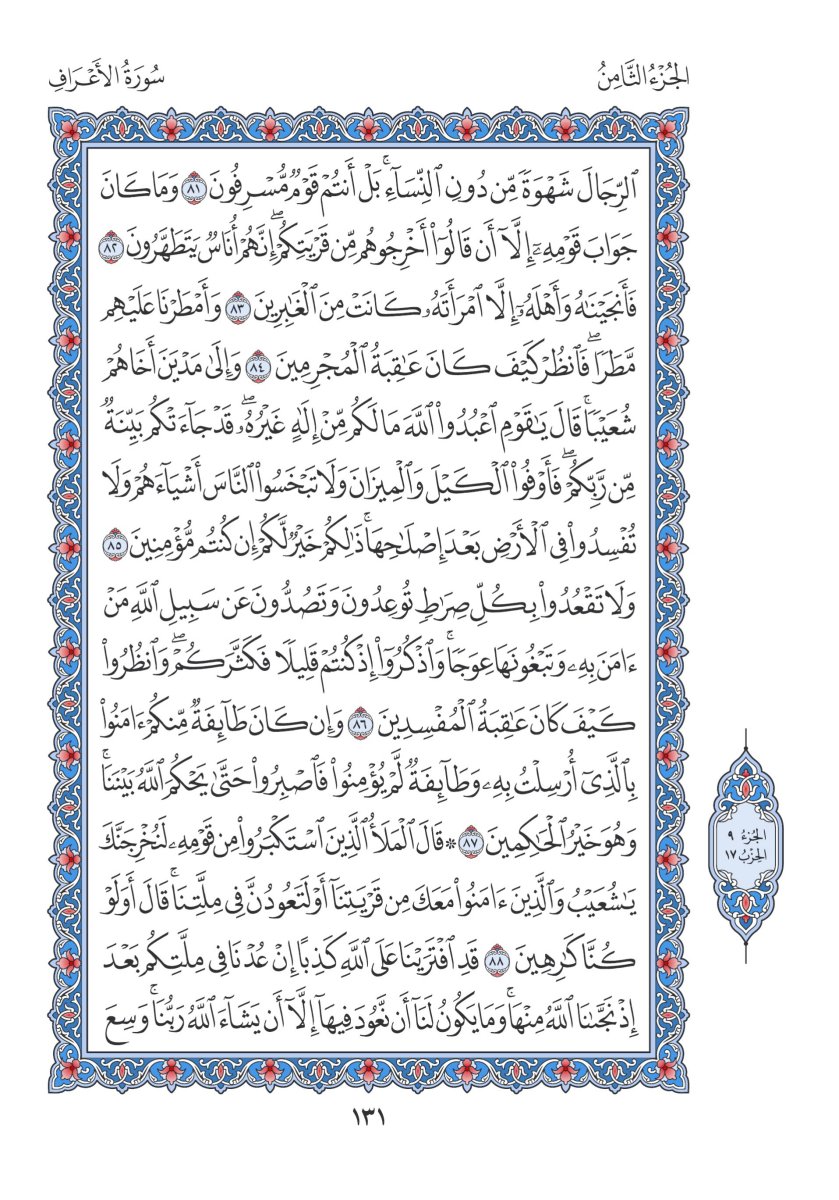 الجُزْءُ الثَّامِنُ
سُورَةُ الأَعْرَافِ
ٱلرِّجَالَ شَهْوَةً مِّن دُونِ ٱلنِّسَآءِۚ بَلْ أَنتُمْ قَوْمٌ مُّسْرِفُونَ ٨١ وَمَا كَانَ
جَوَابَ قَوْمِهِۦٓ إِلَّآ أَن قَالُوٓا۟ أَخْرِجُوهُم مِّن قَرْيَتِكُمْۖ إِنَّهُمْ أُنَاسٌ يَتَطَهَّرُونَ ٨٢
فَأَنجَيْنَٰهُ وَأَهْلَهُۥٓ إِلَّا ٱمْرَأَتَهُۥ كَانَتْ مِنَ ٱلْغَٰبِرِينَ ٨٣ وَأَمْطَرْنَا عَلَيْهِم
مَّطَرًاۖ فَٱنظُرْ كَيْفَ كَانَ عَٰقِبَةُ ٱلْمُجْرِمِينَ ٨٤ وَإِلَىٰ مَدْيَنَ أَخَاهُمْ
شُعَيْبًاۚ قَالَ يَٰقَوْمِ ٱعْبُدُوا۟ ٱللَّهَ مَا لَكُم مِّنْ إِلَٰهٍ غَيْرُهُۥۖ قَدْ جَآءَتْكُم بَيِّنَةٌ
مِّن رَّبِّكُمْۖ فَأَوْفُوا۟ ٱلْكَيْلَ وَٱلْمِيزَانَ وَلَا تَبْخَسُوا۟ ٱلنَّاسَ أَشْيَآءَهُمْ وَلَا
تُفْسِدُوا۟ فِى ٱلْأَرْضِ بَعْدَ إِصْلَٰحِهَاۚ ذَٰلِكُمْ خَيْرٌ لَّكُمْ إِن كُنتُم مُّؤْمِنِينَ ٨٥
وَلَا تَقْعُدُوا۟ بِكُلِّ صِرَٰطٍ تُوعِدُونَ وَتَصُدُّونَ عَن سَبِيلِ ٱللَّهِ مَنْ
ءَامَنَ بِهِۦ وَتَبْغُونَهَا عِوَجًاۚ وَٱذْكُرُوٓا۟ إِذْ كُنتُمْ قَلِيلًا فَكَثَّرَكُمْۖ وَٱنظُرُوا۟
كَيْفَ كَانَ عَٰقِبَةُ ٱلْمُفْسِدِينَ ٨٦ وَإِن كَانَ طَآئِفَةٌ مِّنكُمْ ءَامَنُوا۟
بِٱلَّذِىٓ أُرْسِلْتُ بِهِۦ وَطَآئِفَةٌ لَّمْ يُؤْمِنُوا۟ فَٱصْبِرُوا۟ حَتَّىٰ يَحْكُمَ ٱللَّهُ بَيْنَنَاۚ
وَهُوَ خَيْرُ ٱلْحَٰكِمِينَ ٨٧ ۞ قَالَ ٱلْمَلَأُ ٱلَّذِينَ ٱسْتَكْبَرُوا۟ مِن قَوْمِهِۦ لَنُخْرِجَنَّكَ
يَٰشُعَيْبُ وَٱلَّذِينَ ءَامَنُوا۟ مَعَكَ مِن قَرْيَتِنَآ أَوْ لَتَعُودُنَّ فِى مِلَّتِنَاۚ قَالَ أَوَلَوْ
كُنَّا كَٰرِهِينَ ٨٨ قَدِ ٱفْتَرَيْنَا عَلَى ٱللَّهِ كَذِبًا إِنْ عُدْنَا فِى مِلَّتِكُم بَعْدَ
إِذْ نَجَّىٰنَا ٱللَّهُ مِنْهَاۚ وَمَا يَكُونُ لَنَآ أَن نَّعُودَ فِيهَآ إِلَّآ أَن يَشَآءَ ٱللَّهُ رَبُّنَاۚ وَسِعَ
الجُزْءُ ٩
الحِزْبُ ١٧
١٣١